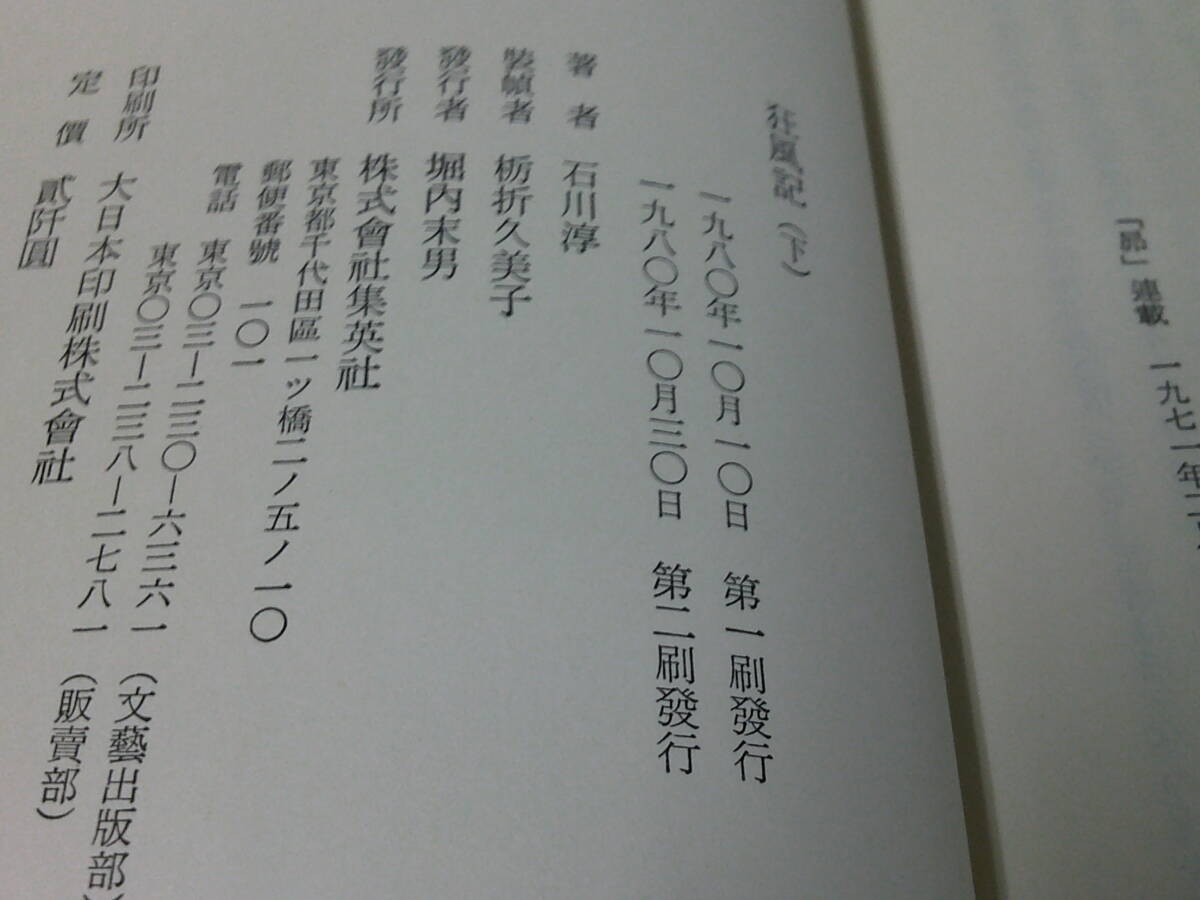 「昴」連載　一九七一年二月
狂風記（下）
一九八〇年一〇月一〇日　第一刷發行
一九八〇年一〇月三〇日　第二刷發行
著者　石川淳
裝幀者　栃折久美子
發行者　堀内末男
發行所　株式會社集英社
東京都千代田區一ツ橋二ノ五ノ一〇
郵便番號　一〇一
電話　東京〇三―二三〇―六三六一（文藝出版部）
東京〇三―二三八―二七八一（販賣部）
印刷所　大日本印刷株式會社
定價　貳阡圓